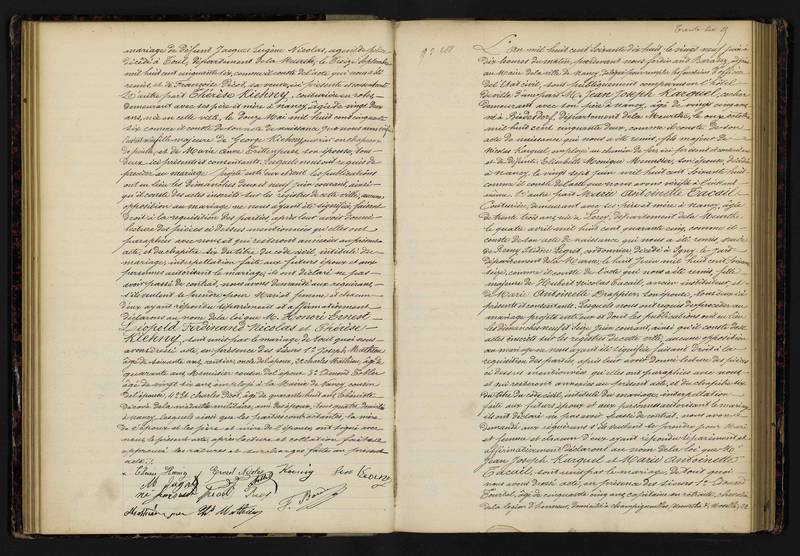 mariage de défunt Jacques Eugène Nicolas, agent de police
décédé à Toul, département de la Meurthe, le treize Septembre
mil huit cent cinquante six, comme il conste de l'acte qui nous a été
remis, et de Françoise Picot, sa veuve, ici présente et consentante
Et d'autre part Thérèse Kiehny, couturière en robes
demeurant avec ses père et mère à Nancy, âgée de vingt deux
ans, née en cette ville, le douze Mai mil huit cent cinquante
six comme il conste de son acte de naissance que nous avons
fille majeure de George Kiehny, ouvrier en chapeaux
de paille, et de Marie Anne son épouse, tous
deux ici présents et consentants. Lesquels nous ont requis de
procéder au mariage projeté entre eux et dont les publications
ont eu lieu les Dimanches deux et neuf juin courant, ainsi
qu'il conste des actes inscrits sur les registres de cette ville; aucune
opposition au mariage ne nous ayant été signifiée, faisant
droit à la réquisition des parties, après leur avoir donné
lecture des pièces ci dessus mentionnées qu'elles ont
paraphées avec nous et qui resteront annexées au présent
acte, et du chapitre six du titre du code civil, intitulé du
mariage, interpellation faite aux futurs époux et aux
personnes autorisant le mariage, ils ont déclaré ne pas
avoir passé de contrat, nous avons demandé aux requérants
s'ils veulent se prendre pour Mari et femme, et chacun
d'eux ayant répondu séparément et affirmativement
déclarons au nom de la loi que M. Honoré Ernest
Léopold Ferdinand Nicolas et Thérèse
Kiehny, sont unis par le mariage. De tout quoi nous
avons dressé acte en présence des sieurs 1° Joseph Mathieu
âgé de soixante ans, oncle de l'époux, 2° Charles Mathieu, âgé de
quarante ans, Menuisier cousin de l'époux 3° Edmond
âgé de vingt six ans employé à la Mairie de Nancy, cousin
de l'épouse, 4° et Charles Picot, âgé de quarante huit ans, Ebéniste
Décoré de la médaille militaire, ami des époux, tous quatre domiciliés
à Nancy, lesquels ainsi que les parties contractantes, la mère
de l'époux et les père et mère de l'épouse, ont signé avec
nous le présent acte, après lecture et collation faites et
approuvé les ratures et surcharges faites au présent
acte.
Nicolas Kiehny
Mathieu Ch. Mathieu
Trente-six
N° 211
L'an mil huit cent soixante dix huit, le vingt neuf juin à
dix heures du matin, pardevant nous
au Maire de la ville de Nancy, délégué pour remplir les fonctions d'officier
de l'état civil, sont publiquement comparus en l'hôtel
de ville d'une part M. Jean Joseph Harquel, cocher
demeurant avec son père à Nancy, âgé de vingt cinq ans
né à département de la Meurthe, le onze octobre
mil huit cent cinquante deux, comme il conste de son
acte de naissance qui nous a été remis, fils majeur de
Nicolas Harquel, employé au chemin de fer ici présent et consentant
et de défunte Elisabeth Monique Meunier, son épouse, décédée
à Nancy, le vingt sept juin mil huit cent soixante huit,
comme il conste de l'acte que nous avons vérifié à l'instant
même. Et d'autre part Marie Antoinette Cacail
Couturière, demeurant avec ses père et mère à Nancy, âgée
de trente trois ans, née à département de la Meurthe
le quatre avril mil huit cent quarante cinq, comme il
conste de son acte de naissance qui nous a été remis, veuve
de décédé à
Département de la Marne, le huit juin mil huit cent soixante
seize, comme il conste de l'acte qui nous a été remis, fille
majeure de Hubert Nicolas Cacail, ancien instituteur et
de Marie Antoinette Drappier son épouse, tous deux ici
présents et consentants. Lesquels nous ont requis de procéder au
mariage projeté entre eux et dont les publications ont eu lieu
les dimanches neuf et seize juin courant, ainsi qu'il conste des
actes inscrits sur les registres de cette ville; aucune opposition
au mariage ne nous ayant été signifiée, faisant droit à la
réquisition des parties, après leur avoir donné lecture des pièces
ci dessus mentionnées qu'elles ont paraphées avec nous
et qui resteront annexées au présent acte, et du chapitre six
du titre du code civil, intitulé du mariage, interpellation
faite aux futurs époux et aux personnes autorisant le mariage
ils ont déclaré ne pas avoir passé de contrat, nous avons
demandé aux requérants s'ils veulent se prendre pour Mari
et femme et chacun d'eux ayant répondu séparément et
affirmativement déclarons au nom de la loi que M.
Jean Joseph Harquel et Marie Antoinette
Cacail, sont unis par le mariage. De tout quoi
nous avons dressé acte, en présence des sieurs 1° Edouard
âgé de cinquante cinq ans, capitaine en retraite, chevalier
de la légion d'honneur, domicilié à Champigneulles, Meurthe &